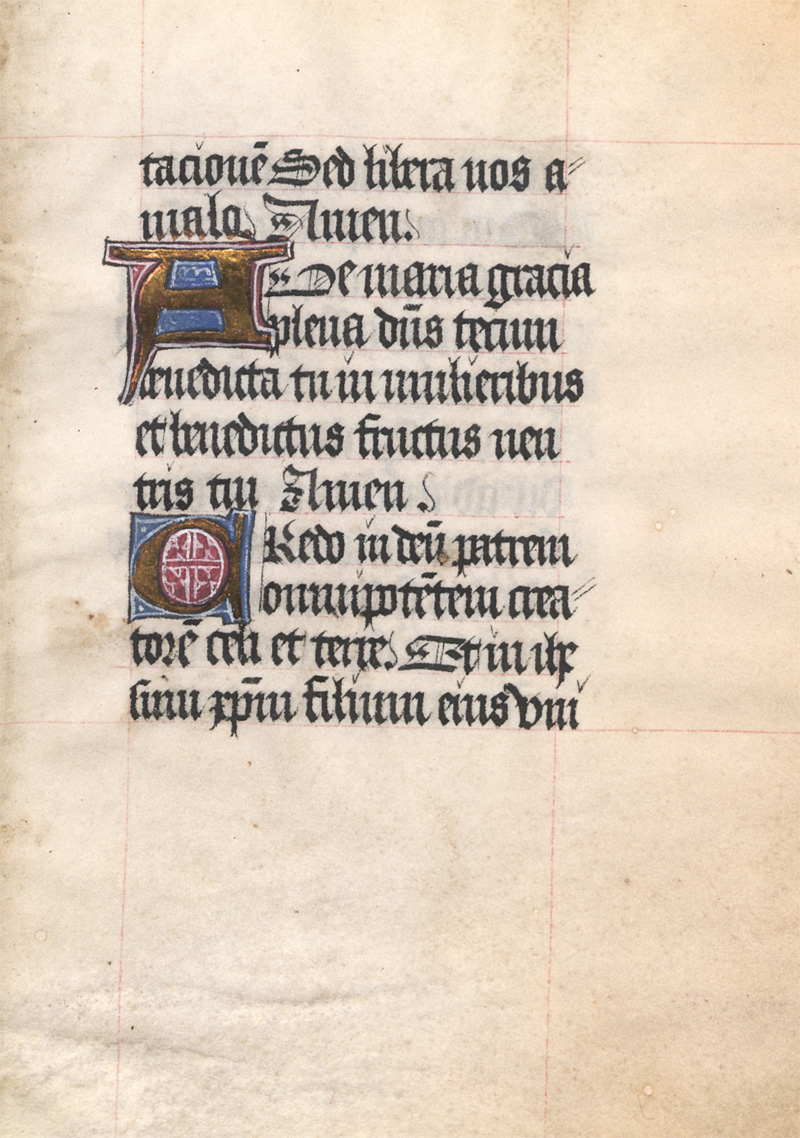 tacionē Sed libera nos a-
malo. Amen.
A De maria gracia
plena dn̄s tecum
benedicta tu in mulieribus
et benedictus fructus uen
tris tui Amen.
C Redo in deū patrem
omnipotētem crea-
torē celi et terre. Et in ihe
sum xp̄m filium eius vni